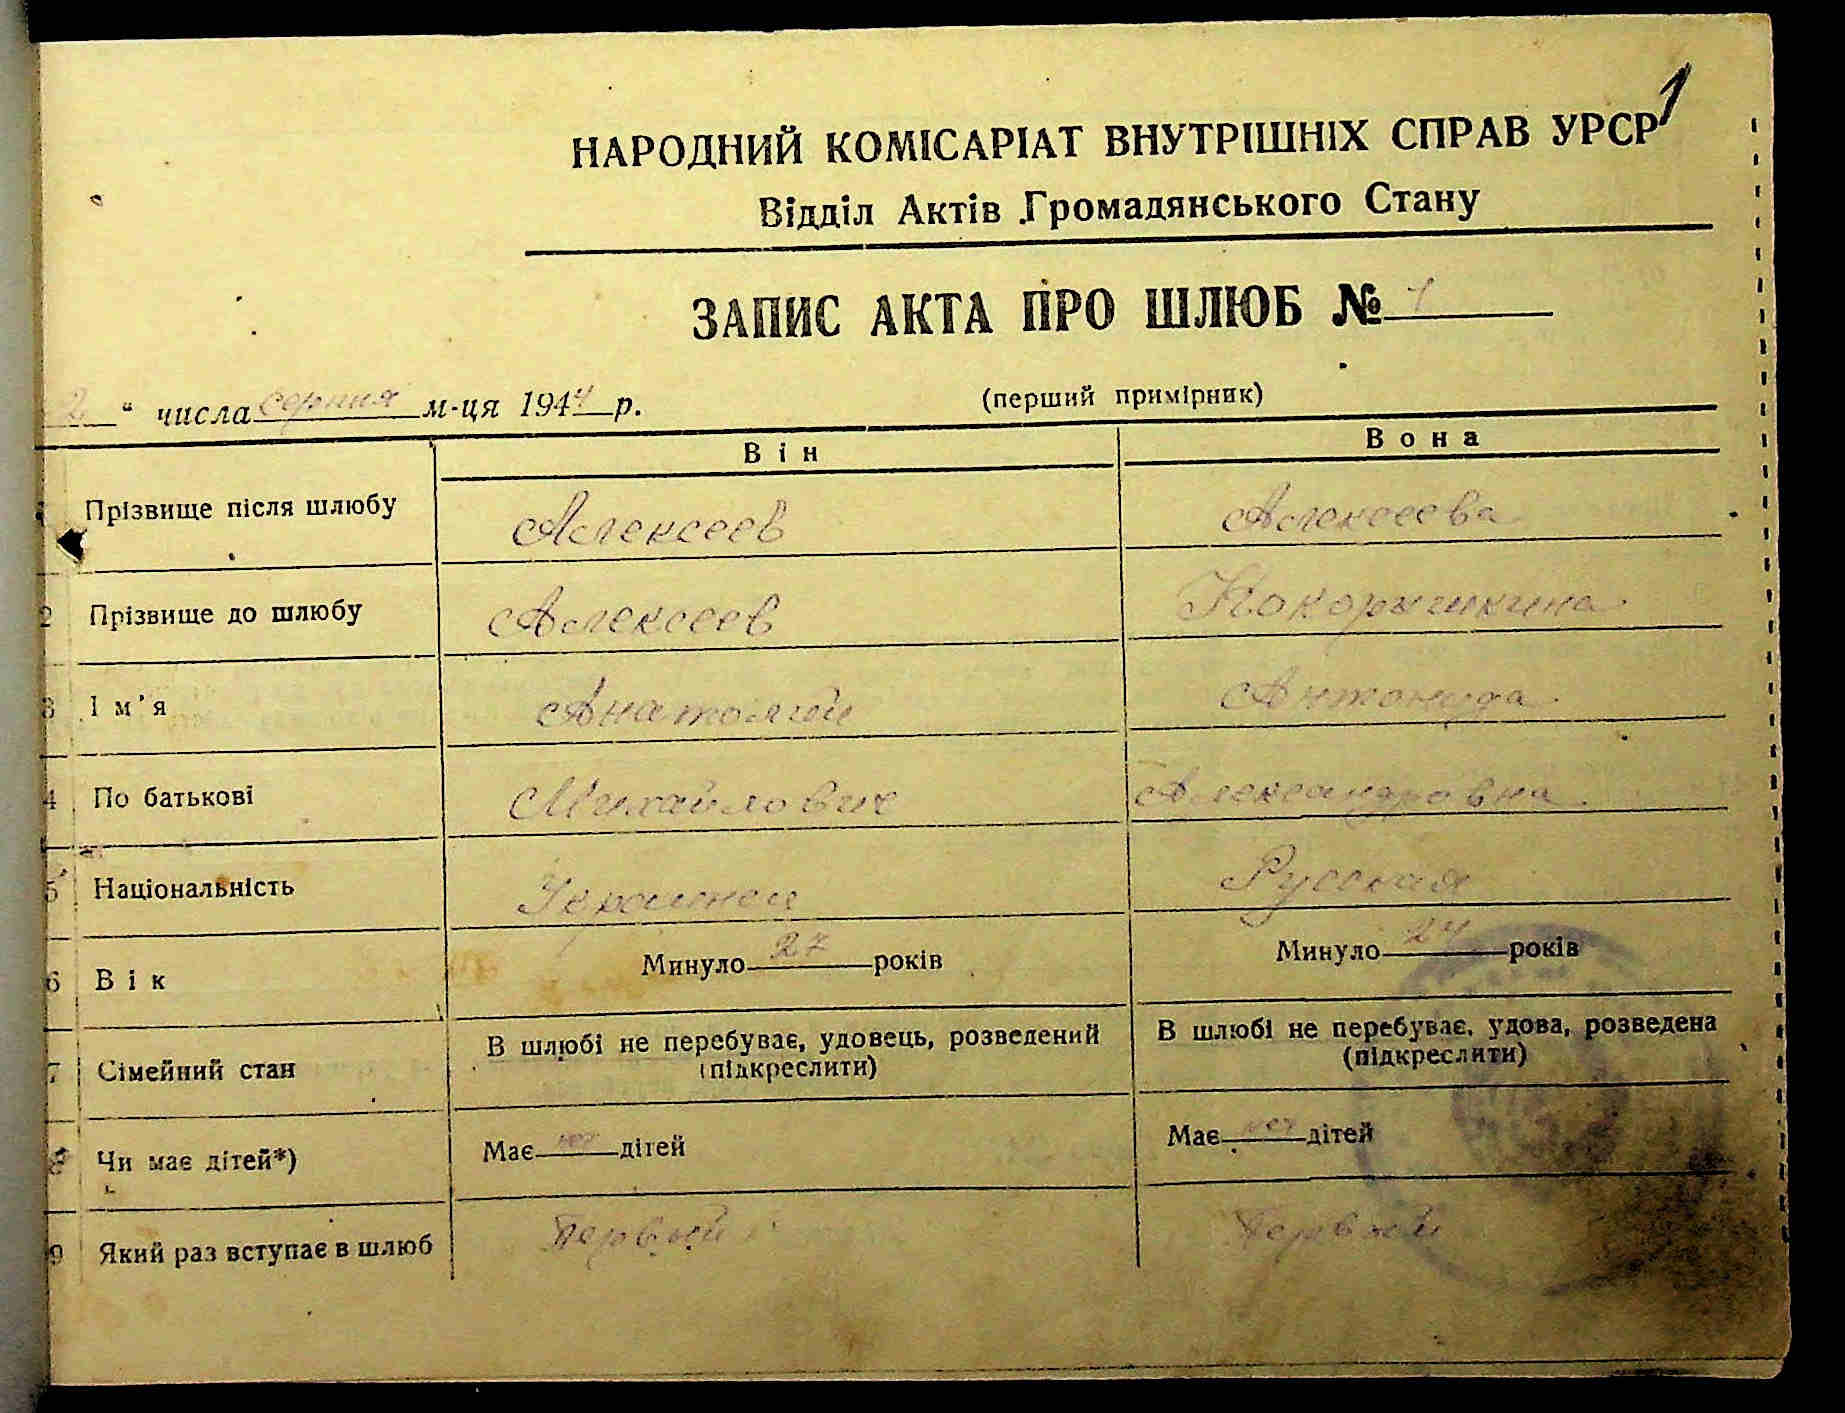 1
НАРОДНИЙ КОМІСАРІАТ ВНУТРІШНІХ СПРАВ УРСР
Відділ Актів Громадянського Стану
ЗАПИС АКТА ПРО ШЛЮБ № 1
2 " числа серпня м-ця 1944 р. (перший примірник)
Він Вона
Прізвище після шлюбу Алексеев Алексеева
2 Прізвище до шлюбу Алексеев
3 Ім'я Анатолий Антонида
4 По батькові Михайлович Александровна
5 Національність Русская
6 Вік Минуло 27 років Минуло 24 років
7 Сімейний стан В шлюбі не перебуває, удовець, розведений (підкреслити) В шлюбі не перебуває, удова, розведена (підкреслити)
8 Чи має дітей*) Має нет дітей Має нет дітей
9 Який раз вступає в шлюб Первый Первый